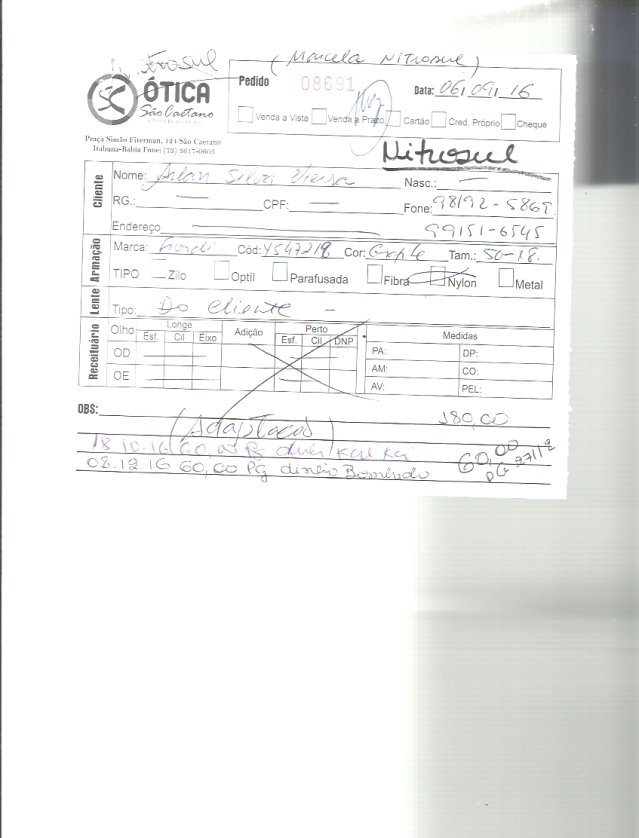 (Marcela Nitrosul)
SC ÓTICA
São Caetano
Pedido 08691 Data: 06/09/16
Venda a Vista Venda a Prazo Cartão Cred. Próprio Cheque
Praça Simão Fiterman, São Caetano
Itabuna-Bahia Fone: (73) 3617-0603
Nitrosul
Cliente
Nome: Silva Vieira Nasc.: —
RG.: — CPF: — Fone: 98192-5869
Endereço — 99151-6545
Armação
Marca: Cód: Cor: Grafite Tam.: 50-18.
TIPO Zilo Optil Parafusada Fibra Nylon Metal
Lente
Tipo: Do Cliente —
Receituário
Olho Longe Adição Perto Medidas
Esf. Cil Eixo Esf. Cil DNP
OD PA: DP:
AM: CO:
OE AV: PEL:
OBS: 180,00
(Adaptacos)
18.10.16 60,00 Pg
08.12.16 60,00 Pg
60,00
PG